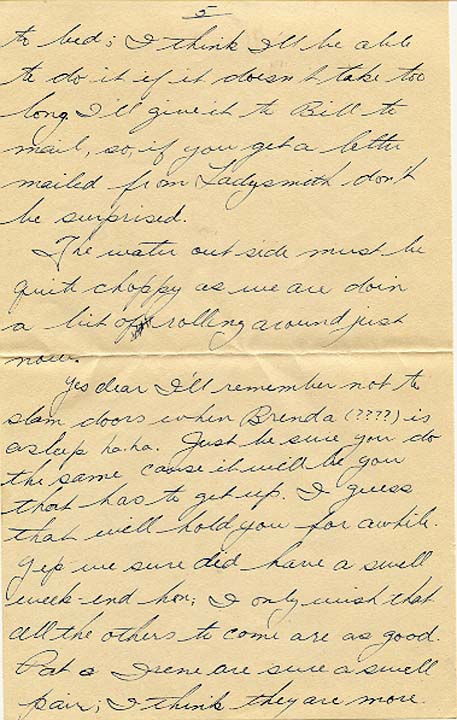 5
to bed; I think I'll be able
to do it if it doesn't take too
long I'll give it to Bill to
mail, so, if you get a letter
mailed from Ladysmith don't
be surprised.
The water out side must be
quite choppy as we are doin
a bit of rolling around just
now.
Yes dear I'll remember not to
slam doors when Brenda (????) is
asleep ha. ha. Just be sure you do
the same cause it will be you
that has to get up. I guess
that will hold you for awhile.
Yep we sure did have a swell
week-end hon; I only wish that
all the others to come are as good.
Pat & Irene are sure a swell
pair; I think they are more